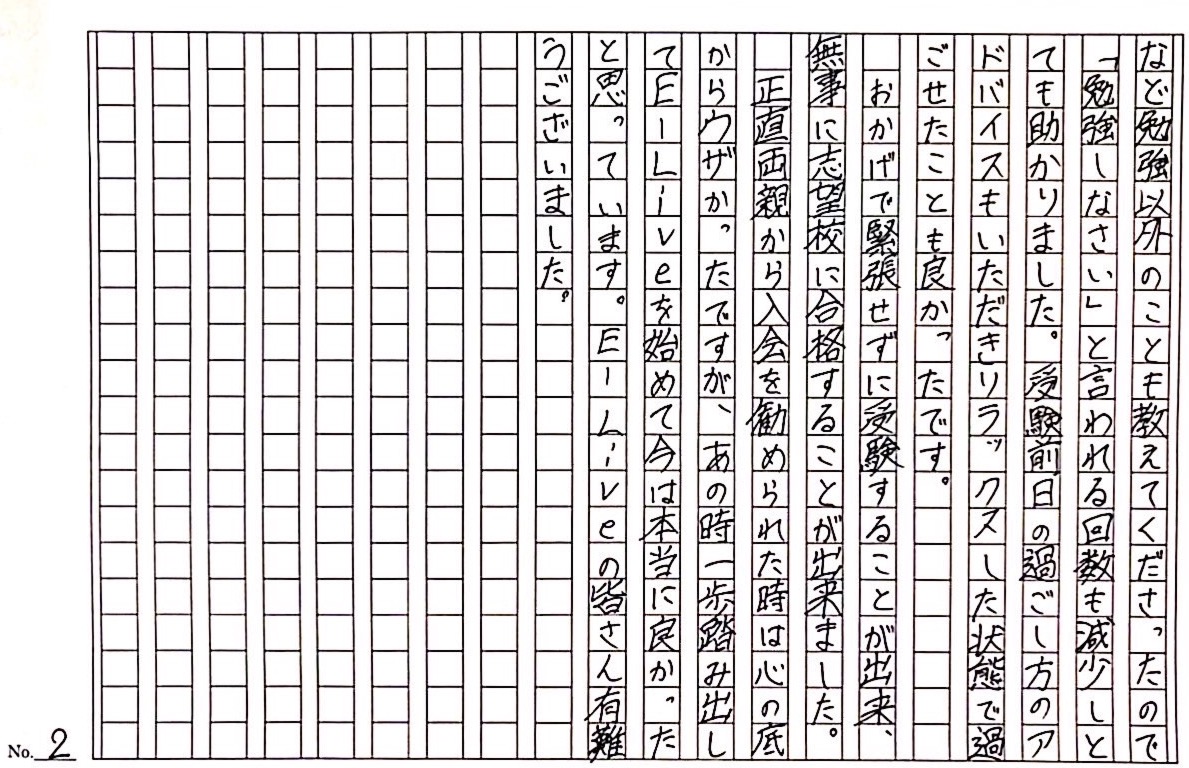 など勉強以外のことも教えてくださったので
「勉強しなさい」と言われる回数も減少しと
ても助かりました。受験前日の過ごし方のア
ドバイスもいただきリラックスした状態で過
ごせたことも良かったです。
おかげで緊張せずに受験することが出来、
無事に志望校に合格することが出来ました。
正直両親から入会を勧められた時は心の底
からウザかったですが、あの時一歩踏み出し
てE-Liveを始めて今は本当に良かった
と思っています。E-Liveの皆さん有難
うございました。
No. 2